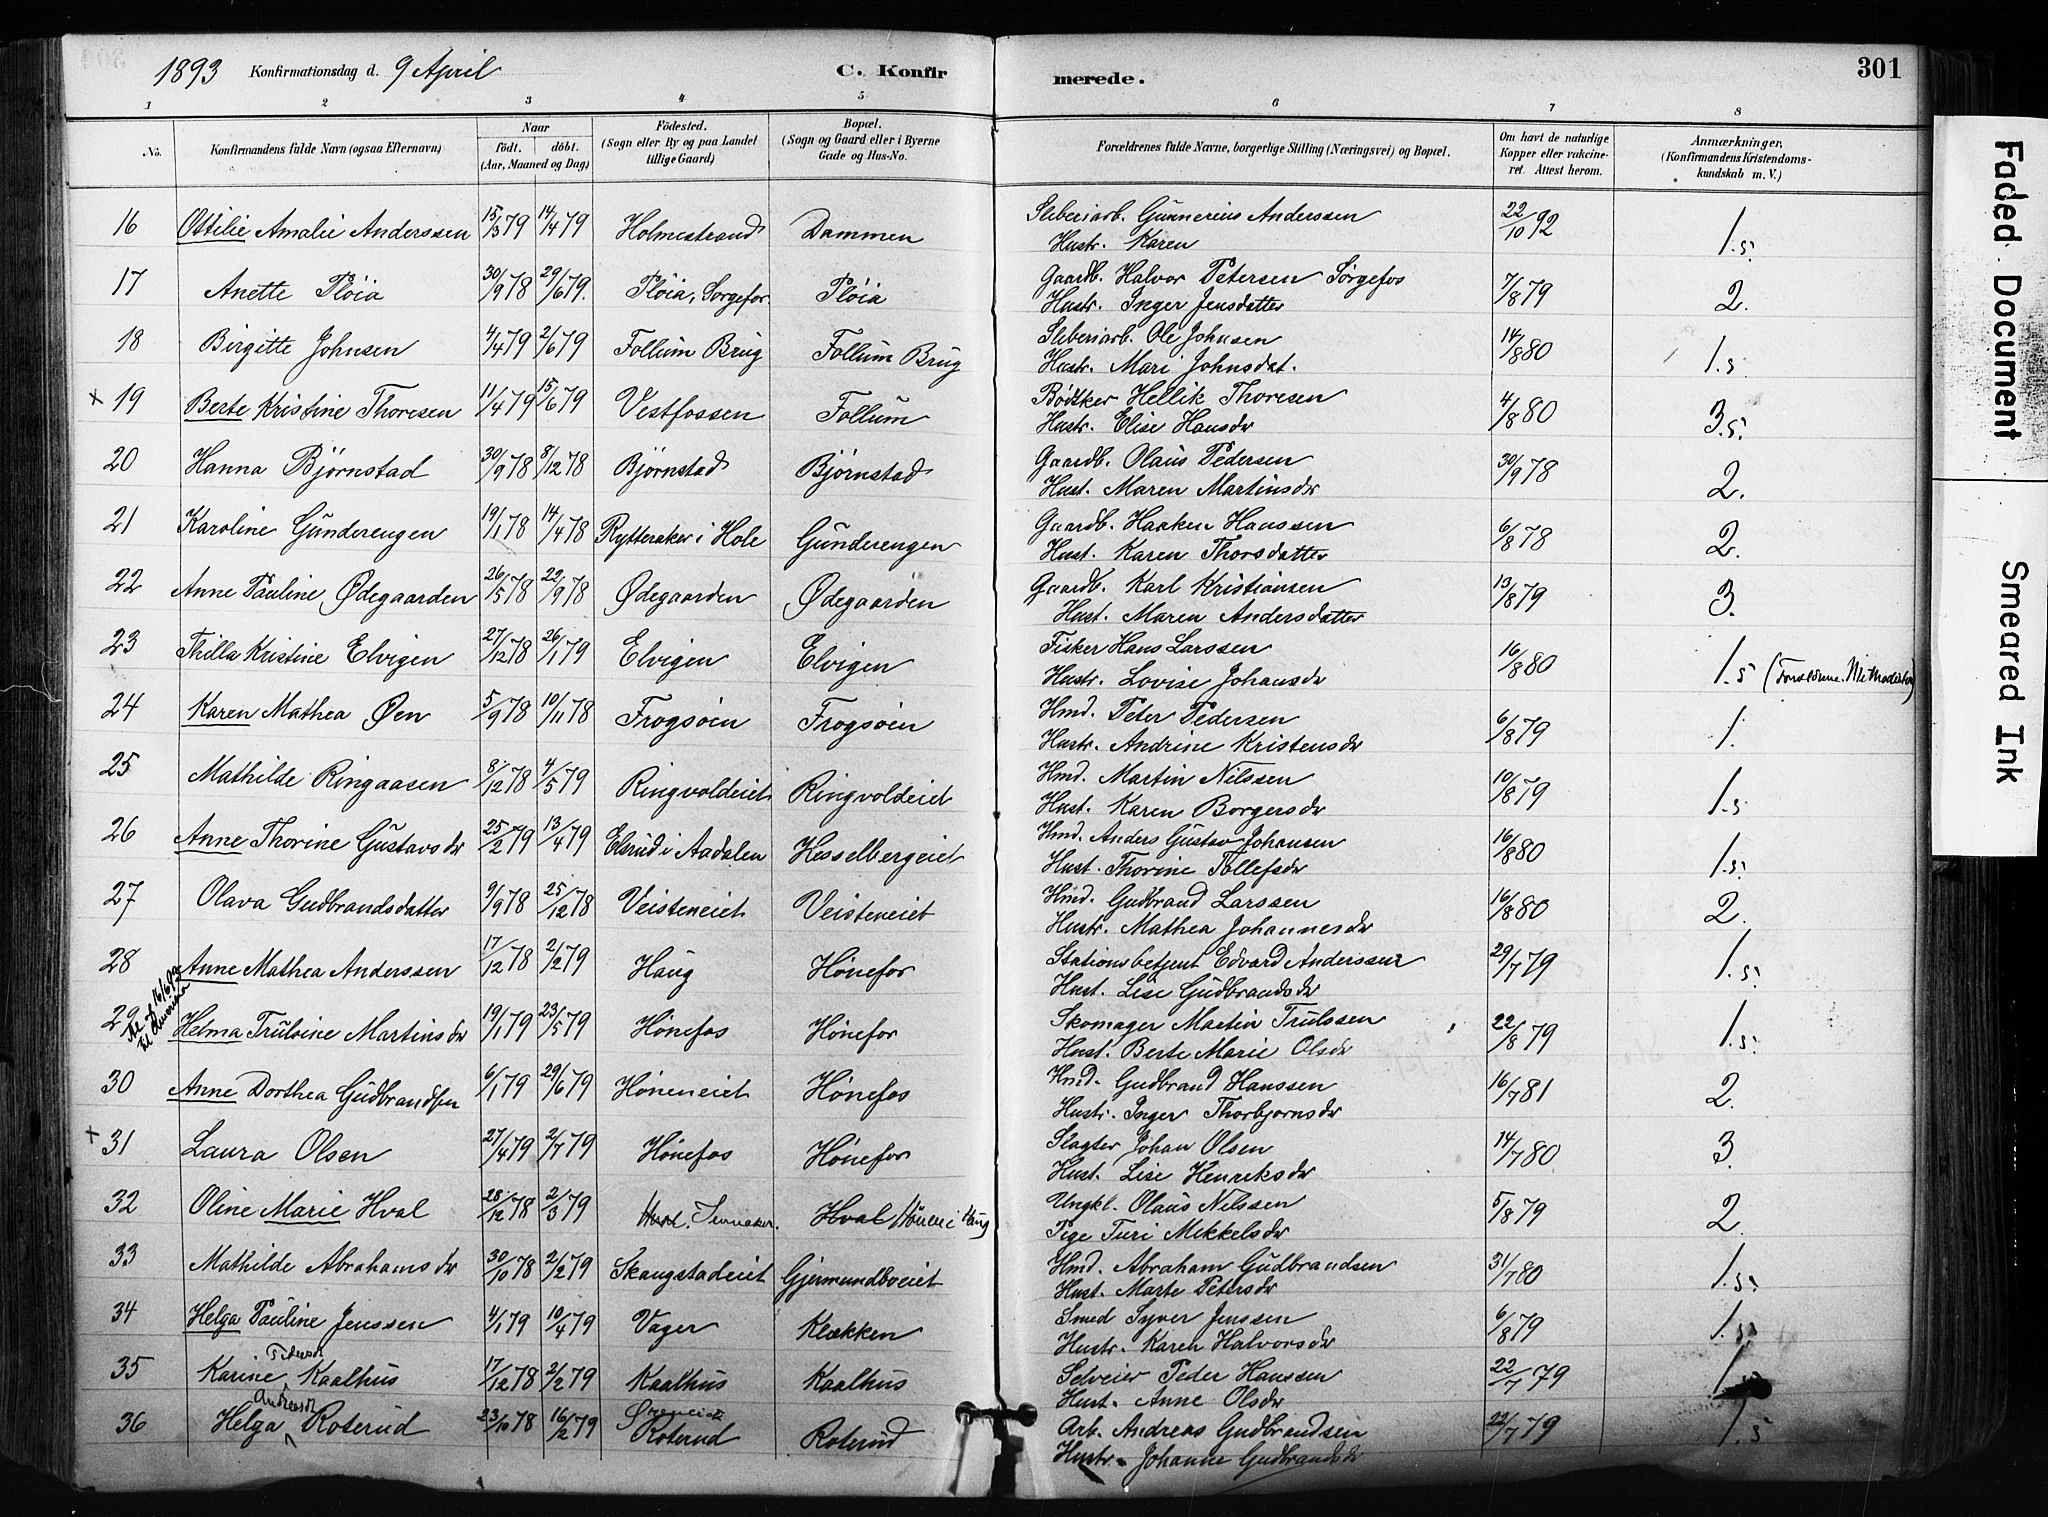 1893 Konfirmationsdag d. 9 April C. Konfirmerede. 301
1 2 3 4 5 6 7 8
No. Konfirmandens fulde Navn (ogsaa Efternavn) Naar födt. döbt. (Aar, Maaned og Dag) Födested. (Sogn eller By og paa Landet tillige Gaard) Bopæl. (Sogn og Gaard eller i Byerne Gade og Hus-No. Forældrenes fulde Navne, borgerlige Stilling (Næringsvei) og Bopæl. Om havt de naturlige Kopper eller vakcineret. Attest herom. Anmærkninger. (Konfirmandens Kristendomskundskab m. V.)
16 Ottilie Amalie Anderssen 15/3 79 14/4 79 Holmestrand Dammen Sliberiarb. Gunnerius Anderssen Hustr. Karen 22/10 92 1.5
17 Anette Pløia 30/9 78 29/6 79. Pløia, Sørgefos Pløia Gaardb. Halvor Petersen Sørgefos Hustr. Inger Jensdatter 7/8 79 2.
18 Birgitte Johnsen 4/4 79 2/6 79 Follum Brug Follum Brug Sliberiarb. Ole Johnsen Hustr. Mari Johnsdat. 14/8 80 1.5
x 19 Berte Kristine Thoresen 11/4 79 15/6 79 Vestfossen Follum Bødker Hellik Thoresen Hustr. Elise Hansdr 4/8 80 3.5
20 Hanna Bjørnstad 30/9 78 8/12 78 Bjørnstad Bjørnstad Gaardb. Olaus Pedersen Hust. Maren Martinsdr 30/9 78 2.
21 Karoline Gunderengen 19/1 78 14/4 78 Rytteraker i Hole Gunderengen Gaardb. Haaken Hanssen Hust. Karen Thorsdatter 6/8 78 2.
22 Anne Pauline Ødegaarden 26/5 78 22/9 78 Ødegaarden Ødegaarden Gaardb. Karl Kristiansen Hust. Maren Andersdatter 13/8 79 3.
23 Thilla Kristine Elvigen 27/12 78 26/1 79 Elvigen Elvigen Fisker Hans Larssen Hustr. Lovise Johansdr 16/8 80 1.5
24 Karen Mathea Øen 5/9 78 10/11 78 Frogsøien Frogsøien Hmd. Peter Pedersen Hustr. Andrine Kristensdr 6/8 79 1.
25 Mathilde Ringaasen 8/12 78 4/5 79 Ringvoldeiet Ringvoldeiet Hmd. Martin Nilssen Hust. Karen Borgersdr 10/8 79 1.5
26 Anne Thorine Gustavsdr 25/2 79 13/4 79 Elsrud i Aadalen Hesselbergeiet Hmd. Anders Gustav Johansen Hust. Thorine Tollefsdr 16/8 80 1.5
27 Olava Gudbrandsdatter 9/9 78 25/12 78 Veisteneiet Veisteneiet Hmd. Gudbrand Larssen Hustr. Mathea Johannesdr 16/8 80 2.
28 Anne Mathea Anderssen 17/12 78 2/2 79 Haug Hønefos Stationsbetjent Edvard Anderssen Hust. Lise Gudbrandsdr 29/7 79 1.5
29 Helma Trulsine Martinsdr 19/1 79 23/5 79 Hønefos Hønefos Skomager Martin Trulssen Hust. Berte Marie Olsdr 22/8 79 1.5
30 Anne Dorthea Gudbrandsen 6/1 79 29/6 79 Høneneiet Hønefos Hmd. Gudbrand Hanssen Hustr. Inger Thorbjørnsdr 16/7 81 2.
+ 31 Laura Olsen 27/4 79 2/7 79 Hønefos Hønefos Slagter Johan Olsen Hust. Lise Henriksdr 14/7 80 3.
32 Oline Marie Hval 28/12 78 2/3 79 Hval Hønen i Haug Ungkl. Olaus Nilssen Pige Turi Mikkelsdr 5/8 79 2.
33 Mathilde Abrahamsdr 30/10 78 2/2 79 Skaugstadeiet Gjermundboeiet Hmd. Abraham Gudbrandsen Hust. Marte Petersdr 31/7 80 1.5
34 Helga Pauline Jenssen 4/1 79 10/4 79 Vager Klækken Smed Syver Jenssen Hustr. Karen Halvorsdr 6/8 79 1.5
35 Karine Pedersdr Kaalhus 17/12 78 2/2 79 Kaalhus Kaalhus Selveier Peder Hanssen Hust. Anne Olsdr 22/7 79 1.
36 Helga Andreasdr Roterud 23/10 78 16/2 79 Roterud Roterud Arb. Andreas Gudbrandsen Hustr. Johanne Gudbrandsdr 22/7 79 1.5
Faded Document
Smeared Ink